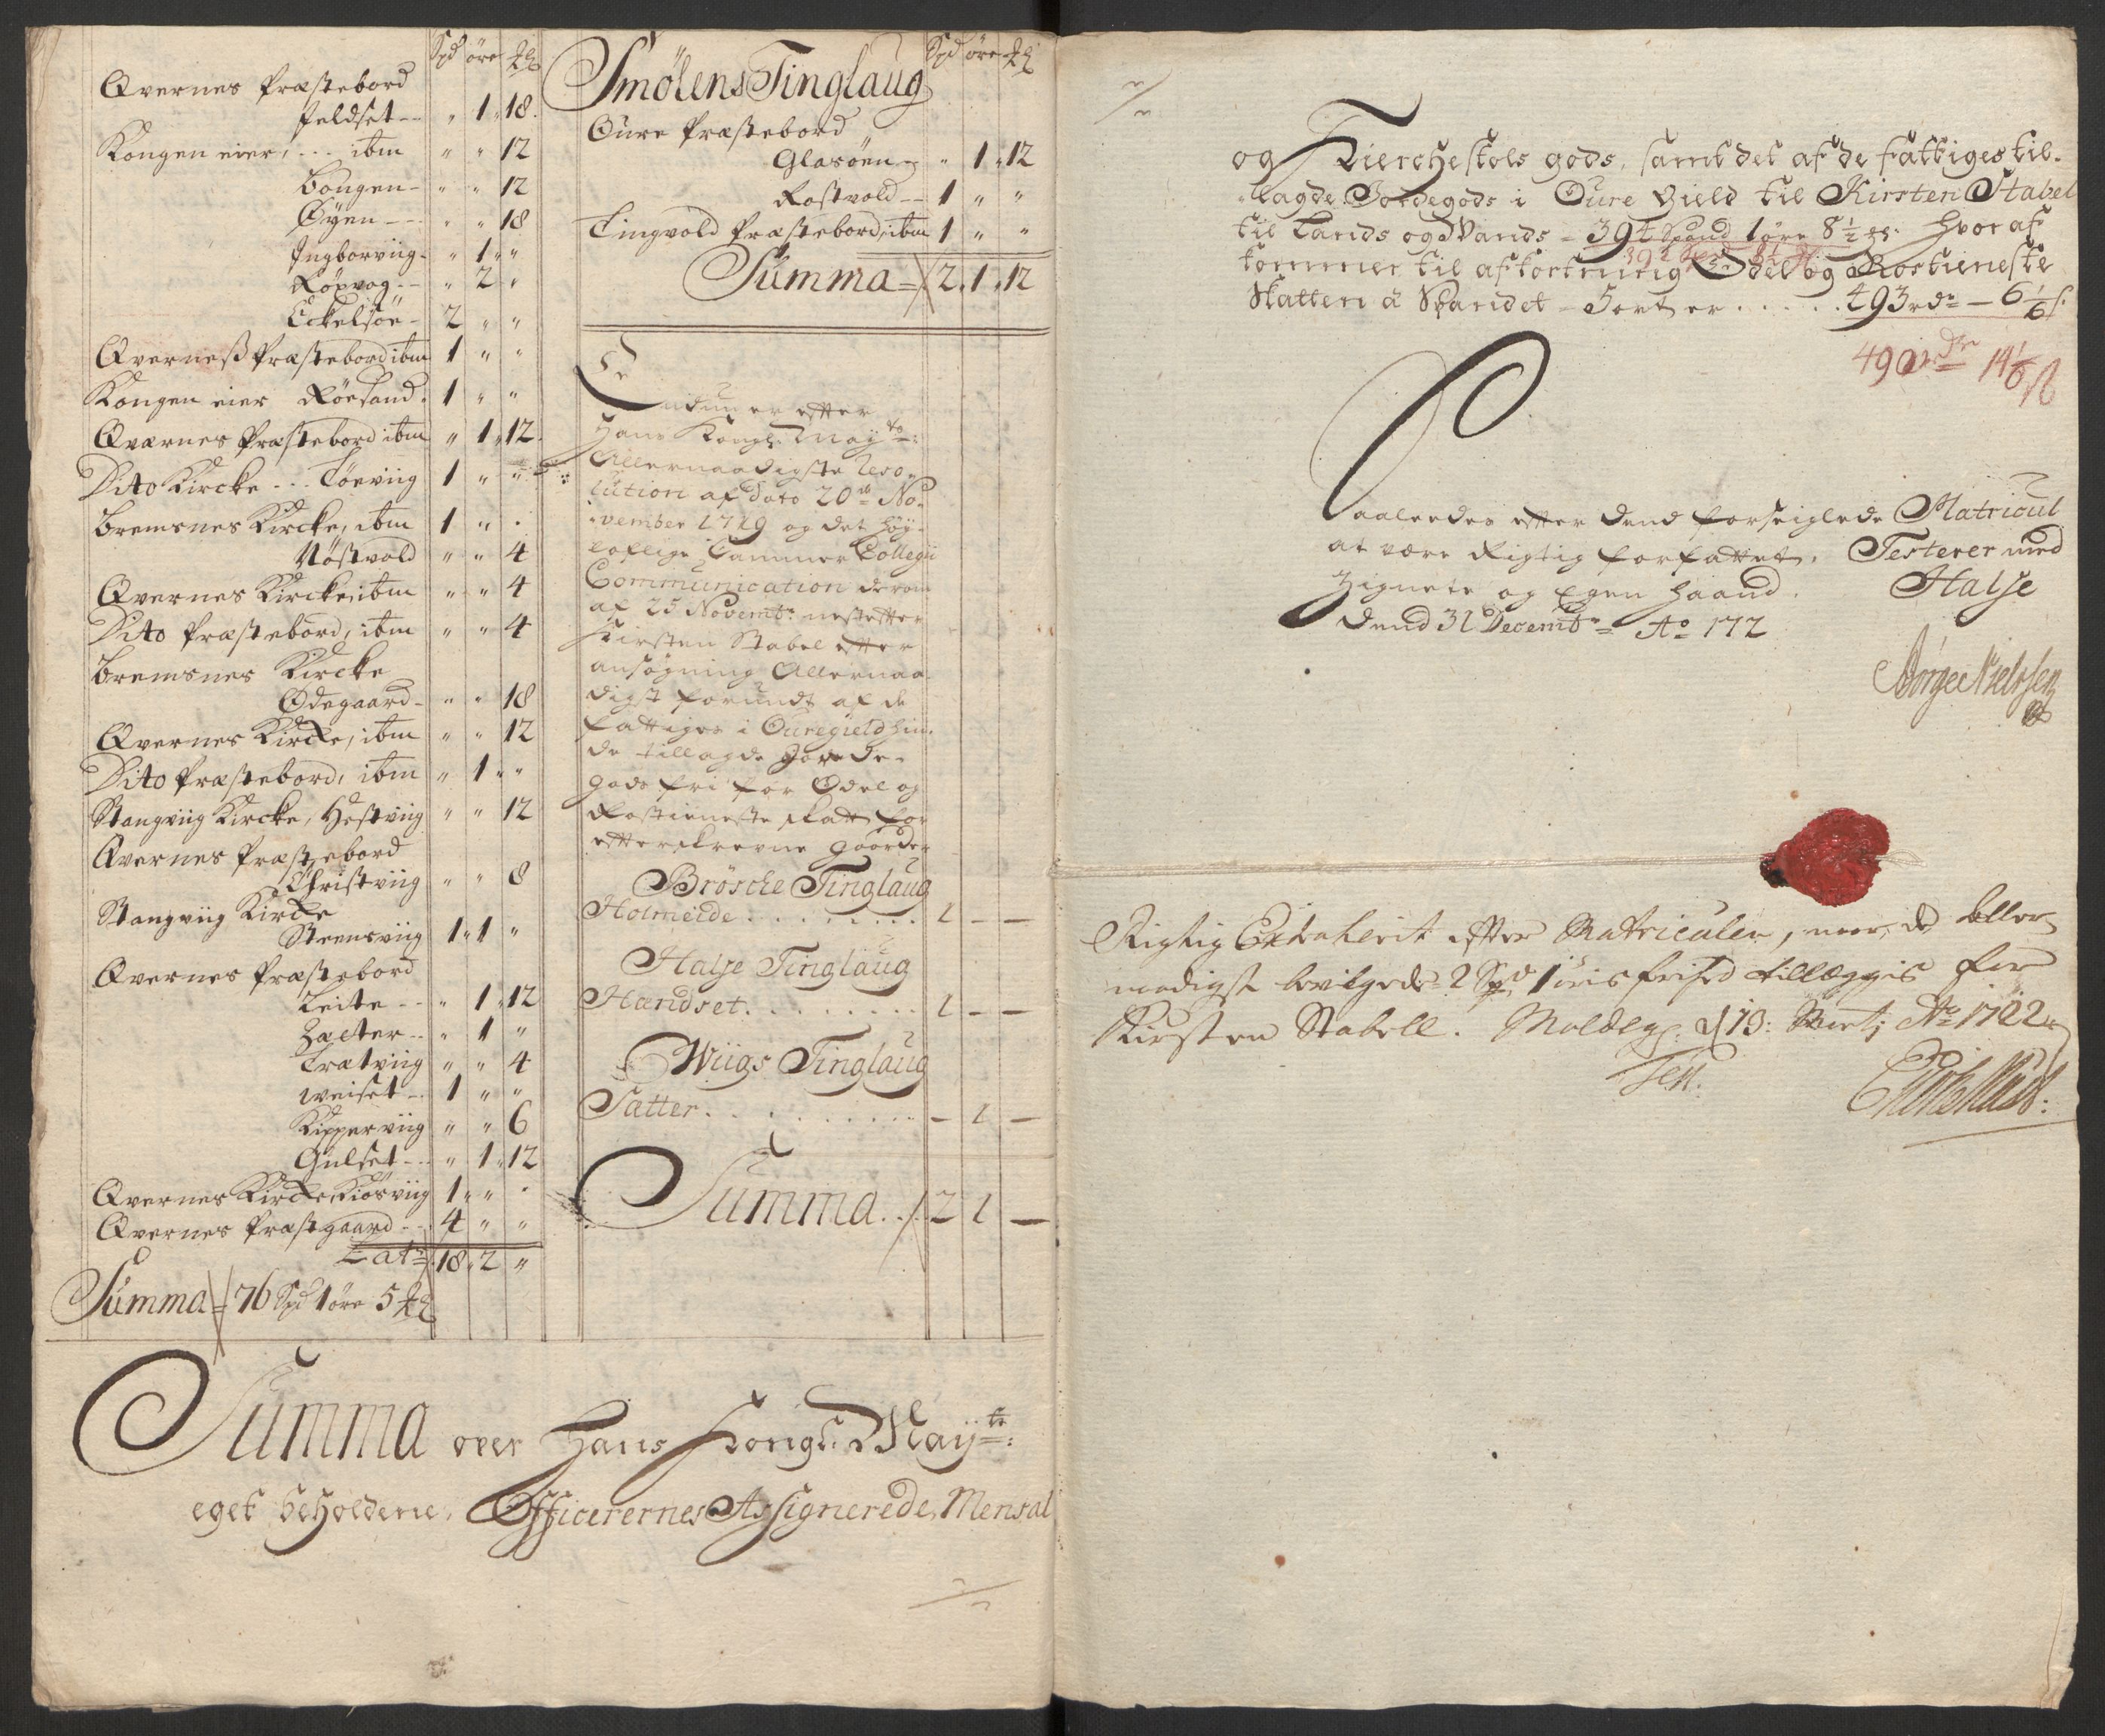 Spd øre
Qvernes Præstebord
Jeldset -- " 1 18.
Kongen eier, --- ibm " " 12
Bougen - " " 12
Øyen --- " " 18
Ingborviig - " 1 "
Røxvog -- " 2 "
Eckelsøe - 2 " "
Qverness Præstebord ibm 1 " "
Kongen eier Røesand. 1 " "
Qværnes Præstebord ibm " 1 12.
Dito Kircke --- Tøeviig 1 " "
Bremsnes Kircke, ibm 1 " "
Nøstvold " " 4
Qvernes Kircke, ibm " " 4
Dito Præstebord, ibm " " 4
Bremsnes Kircke
Ødegaard - " " 18
Qvernes Kircke, ibm " " 12
Dito Præstebord, ibm " 1 "
Stangviig Kircke, Hestviig " " 12
Qvernes Præstebord
Christviig " " 8
Stangviig Kircke
Steensviig 1 1 "
Qvernes Præstebord
Leite -- " 1 12
Sæter -- " 1 "
Trætviig " " 4
weiset -- 1 " "
Kipperviig " " 6
Gulset --- " 1 12
Qvernes Kircke, Kiøsviig 1 " "
Qvernes Præstgaard -- 4 " "
Lat 18 2 "
Summa = 76 Spd 1 øre 5
Spd øre
Smölens Tinglaug
Øure Præstebord
Glasöen - " 1 12
Rostvold -- 1 " "
Tingvold Præstebord, ibm 1 " "
Summa = 2. 1. 12
Endnu er efter
Hans Kongl. Mayts:
Allernaadigste Reso-
lution af dato 20de No-
vember 1719 og det høy-
loflige Cammer Collegii
Communication derom
af 25 Novembr: nestefter
Kirsten Stabel efter
ansøgning Allernaa-
digst forundt af de
fattiges i Øuregield hin-
de tillagde Jorde-
gods fri for Odel og
Rostieneste skatt for
efterskrevne gaarder
Brösche Tinglaug
Holmeide . . . . . . . . 1 — —
Halse Tinglaug
Hændset . . . . . . . . 1 — —
Wiigs Tinglaug
Satter . . . . . . . . . . — 1 —
Summa . . 2 1 —
Summa over Hans Kongl. Mayts:
eget beholdene, Officerernes Assignerede, Mensal
og Kierchestols gods, samt det af de fattiges til-
lagde Jordegods i Øure Gield til Kirsten Stabel
til Lands og Vands = 394 Spand 1 øre 8½ Hvoraf
kommer til afkortning Odel og Rostieneste
Skatten à Spandet - 5ort er . . . . . 493 rdr — 6 1/6 s.
490 rdr 14 1/6 ß
Saaledes efter dend forseiglede Matricul
at være Rigtig forfattet, Testerer med
Zignete og Egen Haand. Halse
Dend 31 Decembr Ao 172
Børge Nielssen
Rigtig Extraherit efter Matriculen, naar de aller
naadigst bevilgede 2 Spd 1 øris frihed tillægges for
Kirsten Stabell. Moldeg: d 13: Ao 1722
Test.